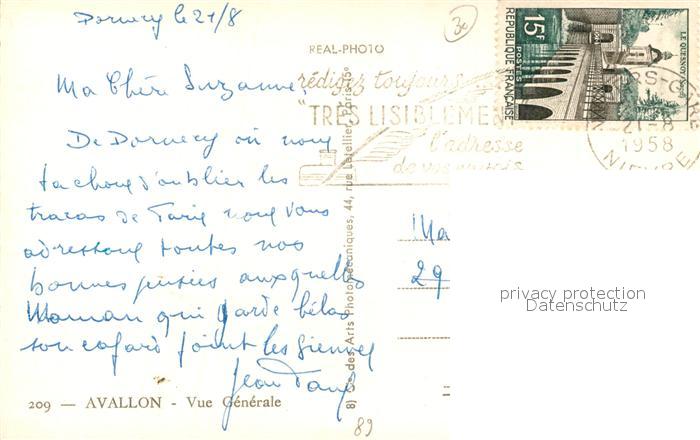 Dornecy le 21/8
3e
REAL-PHOTO
15F
POSTES
RÉPUBLIQUE FRANÇAISE
LE QUESNOY
rédigez toujours
"TRÈS LISIBLEMENT
l'adresse
de vos envois
21-8
1958
NIÈVRE
Ma Chère Suzanne,
De Dornecy où nous
tachons d'oublier les
tracas de Paris nous vous
adressons toutes nos
bonnes pensées auxquelles
Maman qui garde hélas
son cafard joint les siennes
Jean Paul
8) Cie des Arts Photomécaniques, 44, rue Letellier, Paris-15e
Ma
29
privacy protection
Datenschutz
209 — AVALLON - Vue Générale
89